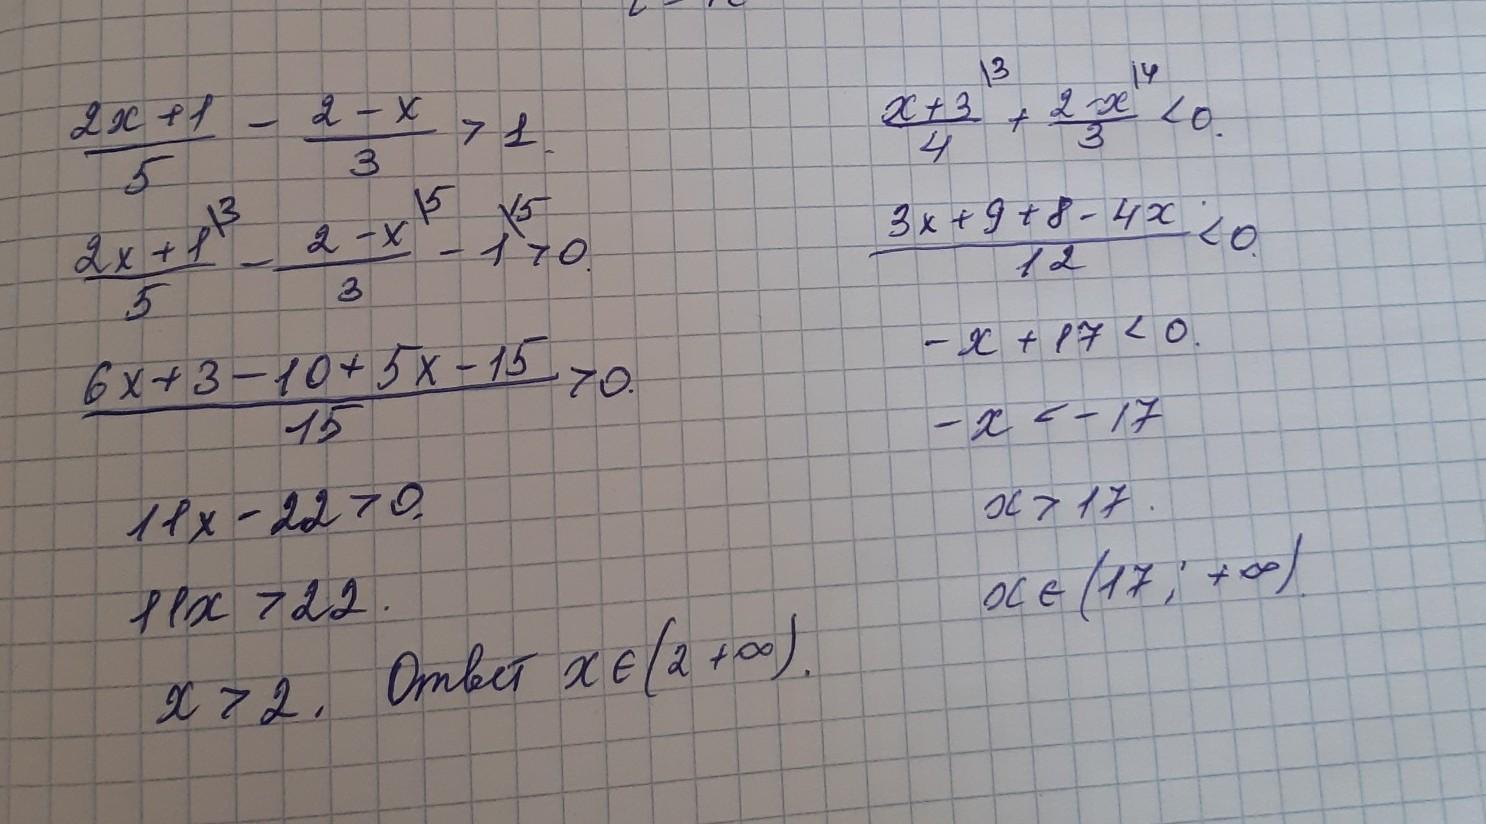 2x+1/5 - 2-x/3 > 1.
2x+1\3/5 - 2-x\5/3 - 1\15 > 0.
6x+3-10+5x-15/15 > 0.
11x - 22 > 0.
11x > 22.
x > 2. Ответ x ∈ (2 +∞).
x+3\3/4 + 2-x\4/3 < 0.
3x+9+8-4x/12 < 0.
-x + 17 < 0.
-x < -17
x > 17.
x ∈ (17; +∞).